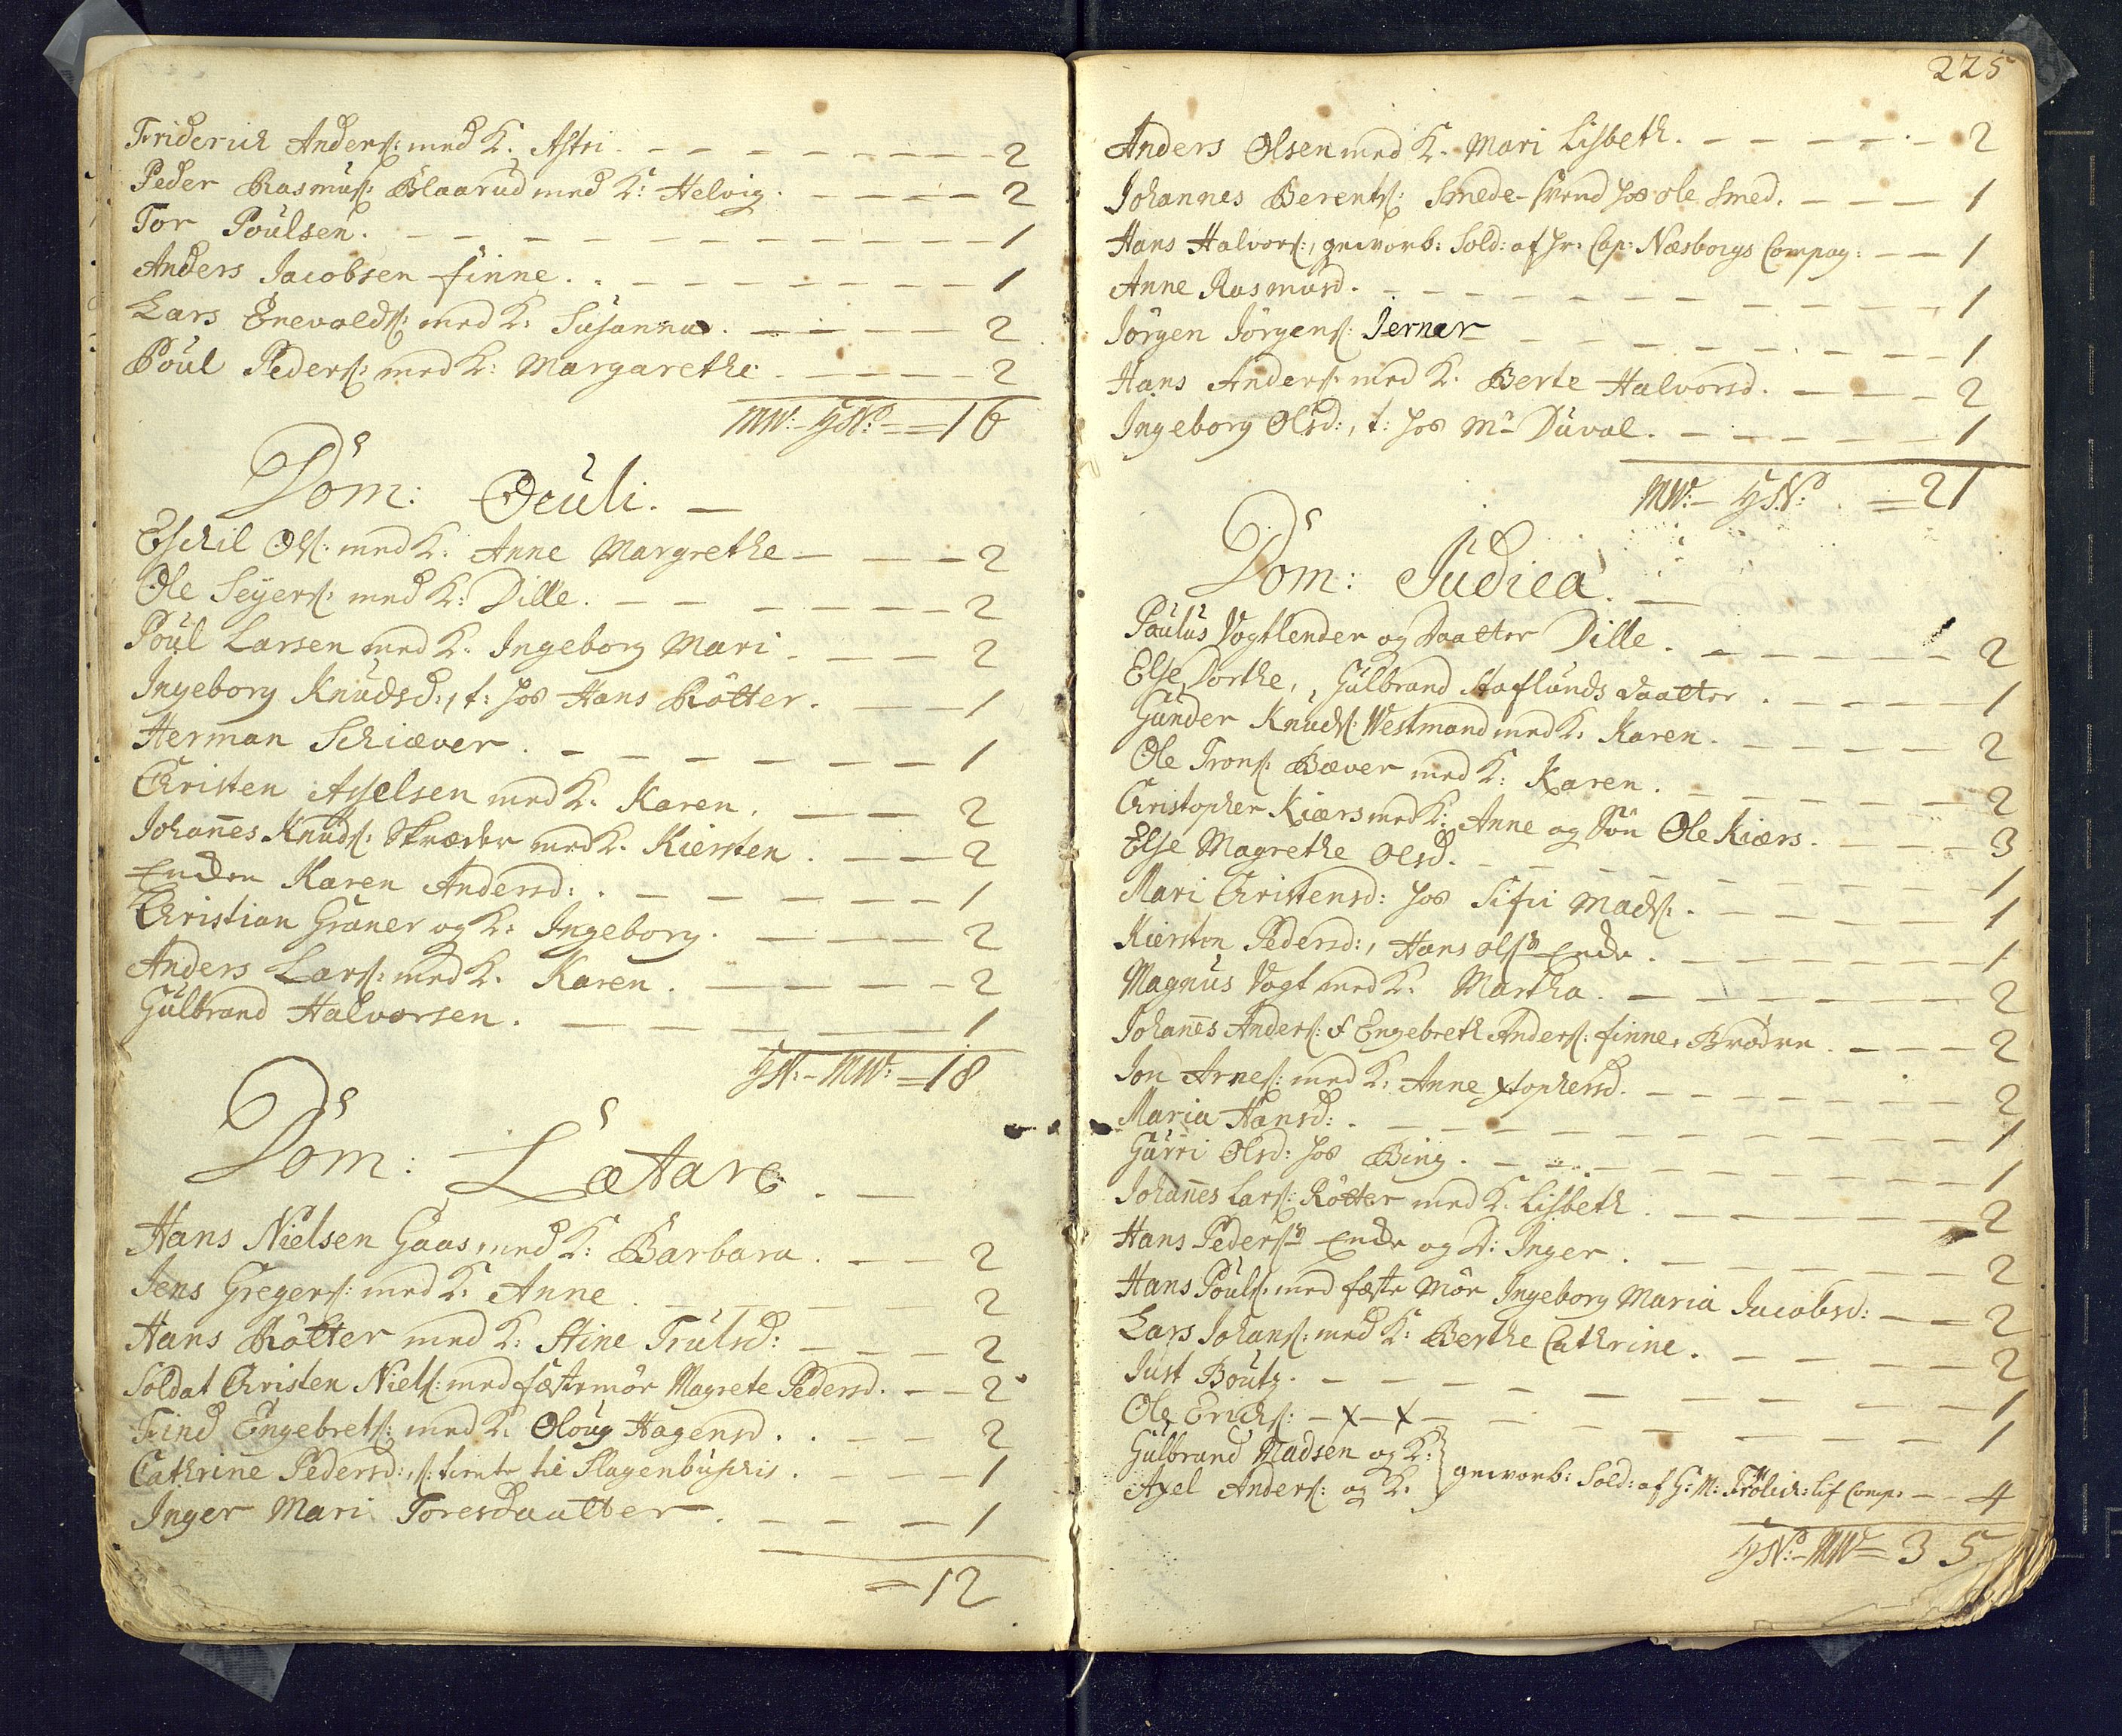 Friderich Anders: med K. Astri. 2
Peder Rasmus: Blaarud med K: Helvig. 2
Tor Poulsen. 1
Anders Jacobsen finne. 1
Lars Enevolds: med K: Susanna. 2
Poul Peders: med K: Margarethe 2
= 16
Dom: Oculi.
Eschil Ols: med K. Anne Margrethe 2
Ole Seyers: med K: Dille. 2
Poul Larsen med K. Ingeborg Mari. 2
Ingeborg Knudsd:, t: hos Hans Rötter. 1
Herman Schiæver. 1
Christen Asselsen med K. Karen. 2
Johanes Knuds: Skræder med K. Kiersten. 2
Encken Karen Andersd: 1
Christian Graner og K: Ingeborg. 2
Anders Lars: med K. Karen. 2
Gulbrand Halvorsen. 1
= 18
Dom: Lætare.
Hans Nielsen Gaas med K: Barbara. 2
Jens Gregers: med K. Anne. 2
Hans Rötter med K: Stine Trulsd: 2
Soldat Christen Niels: med fæstemör Magrete Pedersd. 2
Find Engebrets: med K. Oloug Hagensd. 2
Cathrine Pedersd:, tiente til 1
Inger Mari Toresdaatter. 1
= 12
225
Anders Olsen med K. Mari Lisbeth. 2
Johannes Berents: Smede-svend hos ole Smed. 1
Hans Halvors:, gevorb: Sold: af Hr: Cap: Næsborgs Compag: 1
Anne Rasmusd. 1
Jörgen Jörgens: Jerner 1
Hans Anders: med K. Berte Halvorsd. 2
Ingeborg Olsd:, t: hos Mr Duval. 1
= 21
Dom: Judica.
Paulus Vogtlender og daatter Dille. 2
Else Dorthe, Gulbrand Staflunds daatter. 1
Gunder Knuds: Westmand med K. Karen. 2
Ole Trons: Bæver med K: Karen. 2
Christopher Kiærs med K: Anne og Sön Ole Kiærs. 3
Else Magrethe Olsd. 1
Mari Christensd: hos Sifri Mads: 1
Kiersten Pedersd:, Hans Ols: Encke. 1
Magnus Vogt med K: Martha. 2
Johanes Anders: & Engebreth Anders: finne, Brödre. 2
Jon Arnes: med K: Anne Xtophersd. 2
Maria Hansd: 1
Gurri Olsd: hos Bing. 1
Johanes Lars: Rötter med K: Lisbeth. 2
Hans Peders: Encke og D: Inger. 2
Hans Pouls: med fæste Mör Ingeborg Maria Jacobsd: 2
Lars Johans: med K: Berthe Cathrine. 2
Just Boutz. 1
Ole Ericks: X X 1
Gulbrand Madsen og K:
Axel Anders: og K. gevorb: Sold: af G: M: Frölich: lif Comp. 4
= 35